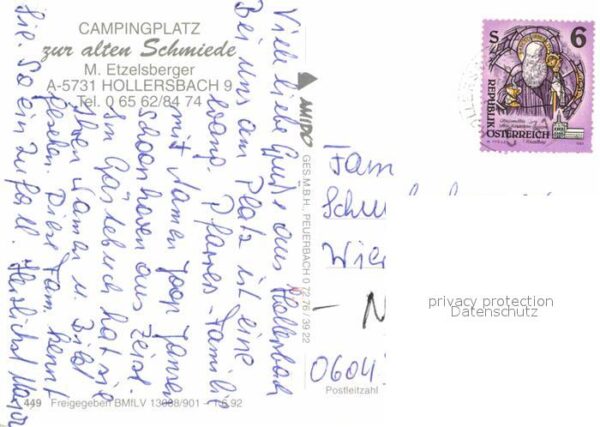 CAMPINGPLATZ
zur alten Schmiede
M. Etzelsberger
A-5731 HOLLERSBACH 9
Tel. 0 65 62/84 74
Viele liebe Grüße aus Hollersbach
Bei uns am Platz ist eine
evang. Pfarrers-Familie
mit Namen Joop Jansen
schoonhoven aus Zeist.
Im Gästebuch hat sie
Ihren Namen u. Bild
gesehen. Diese Fam. kennt
Sie. So ein Zufall. Herzlichst
449 Freigegeben BMfLV 13088/901 – 1.6.92
AMIDO
GES.M.B.H., PEUERBACH 0 72 76 / 39 22
S 6
REPUBLIK
ÖSTERREICH
Fam
Schu
Wie
- N
0604
Postleitzahl
privacy protection
Datenschutz